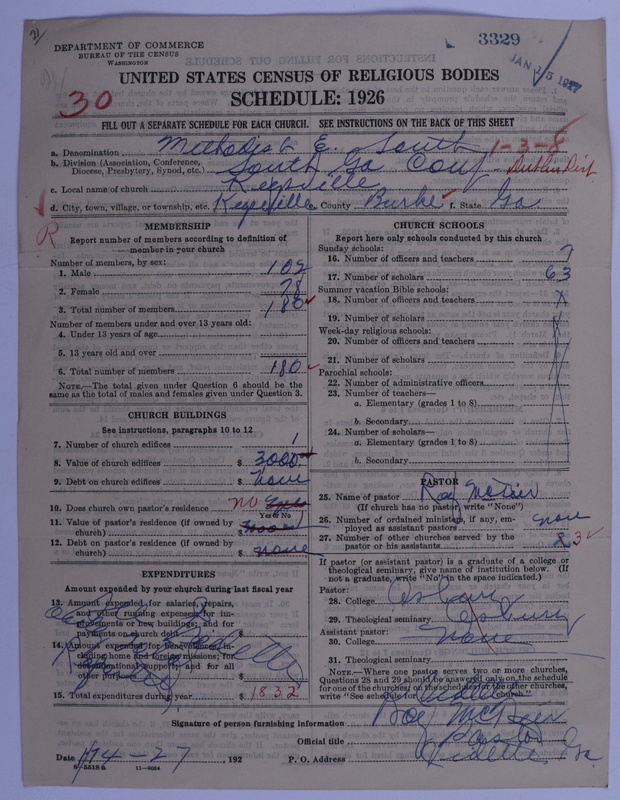 21
DEPARTMENT OF COMMERCE
BUREAU OF THE CENSUS
WASHINGTON
3329
JAN 15 1927
UNITED STATES CENSUS OF RELIGIOUS BODIES
30
SCHEDULE: 1926
FILL OUT A SEPARATE SCHEDULE FOR EACH CHURCH. SEE INSTRUCTIONS ON THE BACK OF THIS SHEET
a. Denomination Methodist E. South 1-3-8
b. Division (Association, Conference, Diocese, Presbytery, Synod, etc.) South Ga Conf Dublin Dist
c. Local name of church Keysville
d. City, town, village, or township, etc. Keysville e. County Burke f. State Ga
R
MEMBERSHIP
Report number of members according to definition of member in your church
Number of members, by sex:
1. Male 102
2. Female 78
3. Total number of members 180
Number of members under and over 13 years old:
4. Under 13 years of age
5. 13 years old and over
6. Total number of members 180
NOTE.—The total given under Question 6 should be the same as the total of males and females given under Question 3.
CHURCH BUILDINGS
See instructions, paragraphs 10 to 12
7. Number of church edifices 1
8. Value of church edifices $ 3000
9. Debt on church edifices $ none
10. Does church own pastor's residence no
Yes or No
11. Value of pastor's residence (if owned by church) $
12. Debt on pastor's residence (if owned by church) $ none
EXPENDITURES
Amount expended by your church during last fiscal year
13. Amount expended for salaries, repairs, and other running expenses; for improvements or new buildings; and for payments on church debt $
14. Amount expended for benevolences, including home and foreign missions; for denominational support; and for all other purposes $
15. Total expenditures during year $ 1832
CHURCH SCHOOLS
Report here only schools conducted by this church
Sunday schools:
16. Number of officers and teachers 7
17. Number of scholars 63
Summer vacation Bible schools:
18. Number of officers and teachers x
19. Number of scholars
Week-day religious schools:
20. Number of officers and teachers
21. Number of scholars
Parochial schools:
22. Number of administrative officers
23. Number of teachers—
a. Elementary (grades 1 to 8)
b. Secondary
24. Number of scholars—
a. Elementary (grades 1 to 8)
b. Secondary
PASTOR
25. Name of pastor Roy McTier
(If church has no pastor, write "None")
26. Number of ordained ministers, if any, employed as assistant pastors none
27. Number of other churches served by the pastor or his assistants 3
If pastor (or assistant pastor) is a graduate of a college or theological seminary, give name of institution below. (If not a graduate, write "No" in the space indicated.)
Pastor:
28. College Asbury
29. Theological seminary Asbury
Assistant pastor:
30. College none
31. Theological seminary
NOTE.—Where one pastor serves two or more churches, Questions 28 and 29 should be answered only on the schedule for one of the churches; on the schedules for the other churches, write "See schedule for church."
Signature of person furnishing information Roy McTier
Official title Pastor
Date 1/14-27, 192 P. O. Address Ga
8-5518 a 11-9054